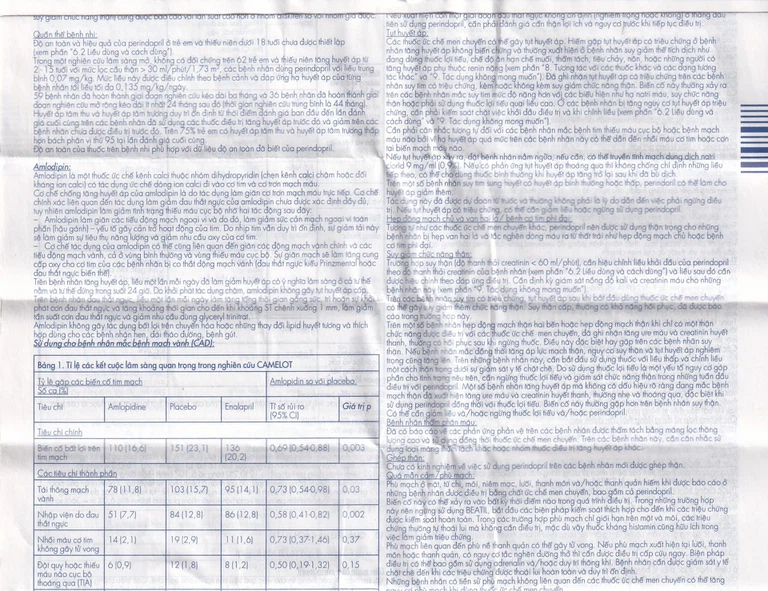 suy giảm chức năng thận) cũng được báo cáo với tần suất cao hơn ở nhóm aliskiren so với nhóm giả dược.
Quần thể bệnh nhi:
Độ an toàn và hiệu quả của perindopril ở trẻ em và thiếu niên dưới 18 tuổi chưa được thiết lập
(xem phần "6.2 Liều dùng và cách dùng").
Trong một nghiên cứu lâm sàng mở, không có đối chứng trên 62 trẻ em và thiếu niên tăng huyết áp từ
2 - 15 tuổi với mức lọc cầu thận > 30 ml/phút/1,73 m², các bệnh nhân dùng perindopril với liều trung
bình 0,07 mg/kg. Mức liều này được điều chỉnh theo bệnh cảnh và đáp ứng hạ huyết áp của từng
bệnh nhân tới liều tối đa 0,135 mg/kg/ngày.
59 bệnh nhân đã hoàn thành giai đoạn nghiên cứu kéo dài ba tháng và 36 bệnh nhân đã hoàn thành giai
đoạn nghiên cứu mở rộng kéo dài ít nhất 24 tháng sau đó (thời gian nghiên cứu trung bình là 44 tháng).
Huyết áp tâm thu và huyết áp tâm trương duy trì ổn định từ thời điểm đánh giá ban đầu đến lần đánh
giá cuối cùng trên các bệnh nhân đã sử dụng các thuốc điều trị tăng huyết áp trước đó và giảm trên các
bệnh nhân chưa được điều trị trước đó. Trên 75% trẻ em có huyết áp tâm thu và huyết áp tâm trương thấp
hơn bách phân vị thứ 95 tại lần đánh giá cuối cùng.
Độ an toàn của thuốc trên bệnh nhi phù hợp với dữ liệu độ an toàn đã biết của perindopril.
Amlodipin:
Amlodipin là một thuốc ức chế kênh calci thuộc nhóm dihydropyridin (chẹn kênh calci chậm hoặc đối
kháng ion calci) có tác dụng ức chế dòng ion calci đi vào cơ tim và cơ trơn mạch máu.
Cơ chế chống tăng huyết áp của amlodipin là do tác dụng làm giãn cơ trơn mạch máu trực tiếp. Cơ chế
chính xác liên quan đến tác dụng làm giảm đau thắt ngực của amlodipin chưa được xác định đầy đủ,
tuy nhiên amlodipin làm giảm tình trạng thiếu máu cục bộ nhờ hai tác động sau đây:
– Amlodipin làm giãn các tiểu động mạch ngoại vi và do đó, làm giảm sức cản mạch ngoại vi toàn
phần (hậu gánh) – yếu tố gây cản trở hoạt động của tim. Do nhịp tim vẫn duy trì ổn định, sự giảm tải này
sẽ làm giảm sự tiêu thụ năng lượng và giảm nhu cầu oxy của cơ tim.
– Cơ chế tác dụng của amlodipin có thể cũng liên quan đến giãn các động mạch vành chính và các
tiểu động mạch vành, cả ở vùng bình thường và vùng thiếu máu cục bộ. Sự giãn mạch sẽ làm tăng cung
cấp oxy cho cơ tim của các bệnh nhân bị co thắt động mạch vành (đau thắt ngực kiểu Prinzmetal hoặc
đau thắt ngực biến thể).
Trên bệnh nhân tăng huyết áp, liều một lần mỗi ngày đã làm giảm huyết áp có ý nghĩa lâm sàng ở cả tư thế
nằm và tư thế đứng trong suốt 24 giờ. Do khởi phát tác dụng chậm, amlodipin không gây tụt huyết áp cấp.
Trên bệnh nhân đau thắt ngực, liều một lần mỗi ngày làm tăng tổng thời gian gắng sức, trì hoãn sự khởi
phát cơn đau thắt ngực và tăng khoảng thời gian cho đến khi khoảng ST chênh xuống 1 mm, làm giảm
tần suất cơn đau thắt ngực và giảm nhu cầu dùng glyceryl trinitrat.
Amlodipin không gây tác dụng bất lợi trên chuyển hóa hoặc những thay đổi lipid huyết tương và thích
hợp dùng cho các bệnh nhân hen, đái tháo đường, bệnh gút.
Sử dụng cho bệnh nhân mắc bệnh mạch vành (CAD):
Bảng 1. Tỉ lệ các kết cuộc lâm sàng quan trọng trong nghiên cứu CAMELOT
Tỷ lệ gặp các biến cố tim mạch Amlodipin so với placebo
Số ca (%)
Tiêu chí Amlodipine Placebo Enalapril Tỉ số rủi ro Giá trị p
(95% CI)
Tiêu chí chính
Biến cố bất lợi trên tim mạch 110 (16,6) 151 (23,1) 136 (20,2) 0,69 (0,54-0,88) 0,003
Các tiêu chí thành phần
Tái thông mạch vành 78 (11,8) 103 (15,7) 95 (14,1) 0,73 (0,54-0,98) 0,03
Nhập viện do đau thắt ngực 51 (7,7) 84 (12,8) 86 (12,8) 0,58 (0,41-0,82) 0,002
Nhồi máu cơ tim không gây tử vong 14 (2,1) 19 (2,9) 11 (1,6) 0,73 (0,37-1,46) 0,37
Đột quỵ hoặc thiếu máu não cục bộ thoáng qua (TIA) 6 (0,9) 12 (1,8) 8 (1,2) 0,50 (0,19-1,32) 0,15
tiên sử dụng perindopril, cần phải đánh giá cẩn thận lợi ích và nguy cơ trước khi tiếp tục điều trị.
Tụt huyết áp:
Các thuốc ức chế men chuyển có thể gây tụt huyết áp. Hiếm gặp tụt huyết áp có triệu chứng ở bệnh
nhân tăng huyết áp không biến chứng và thường xuất hiện ở bệnh nhân suy giảm thể tích dịch như
đang dùng thuốc lợi tiểu, chế độ ăn hạn chế muối, thẩm tách, tiêu chảy, nôn, hoặc những người có
tăng huyết áp phụ thuộc renin nặng (xem phần "8. Tương tác với các thuốc khác và các dạng tương
tác khác" và "9. Tác dụng không mong muốn"). Đã ghi nhận tụt huyết áp có triệu chứng trên các bệnh
nhân suy tim có triệu chứng, kèm hoặc không kèm suy giảm chức năng thận. Biến cố này thường xảy ra
trên các bệnh nhân mắc suy tim mức độ nặng hơn với các biểu hiện như hạ natri máu, suy chức năng
thận hoặc phải sử dụng thuốc lợi tiểu quai liều cao. Ở các bệnh nhân bị tăng nguy cơ tụt huyết áp triệu
chứng, cần phải kiểm soát chặt việc khởi đầu điều trị và khi chỉnh liều (xem phần "6.2 Liều dùng và
cách dùng" và "9. Tác dụng không mong muốn").
Cần phải cân nhắc tương tự đối với các bệnh nhân mắc bệnh tim thiếu máu cục bộ hoặc bệnh mạch
máu não bởi hạ huyết áp quá mức trên các bệnh nhân này có thể dẫn đến nhồi máu cơ tim hoặc cơn
tai biến mạch máu não.
Nếu tụt huyết áp xảy ra, đặt bệnh nhân nằm ngửa, nếu cần, có thể truyền tĩnh mạch dung dịch natri
clorid 9 mg/ml (0,9%). Nếu có phản ứng tụt huyết áp thoáng qua thì không chống chỉ định những liều
tiếp theo, có thể cho dùng thuốc bình thường khi huyết áp tăng trở lại sau khi đã bù dịch.
Trên một số bệnh nhân suy tim sung huyết có huyết áp bình thường hoặc thấp, perindopril có thể làm hạ
huyết áp giảm thêm.
Tác dụng này đã được dự đoán từ trước và thường không phải là lý do dẫn đến việc phải ngừng điều
trị. Nếu tụt huyết áp có triệu chứng, có thể cần giảm liều hoặc ngừng sử dụng perindopril.
Hẹp động mạch chủ và van hai lá/ bệnh cơ tim phì đại:
Tương tự như các thuốc ức chế men chuyển khác, perindopril nên được sử dụng thận trọng cho những
bệnh nhân bị hẹp van hai lá và tắc nghẽn dòng máu ra từ thất trái như hẹp động mạch chủ hoặc bệnh
cơ tim phì đại.
Suy giảm chức năng thận:
Trường hợp suy thận (độ thanh thải creatinin < 60 ml/phút), cần hiệu chỉnh liều khởi đầu của perindopril
theo độ thanh thải creatinin của bệnh nhân (xem phần "6.2 Liều dùng và cách dùng") và liều sau đó cần
được hiệu chỉnh theo đáp ứng điều trị. Cần định kỳ giám sát nồng độ kali và creatinin máu cho những
bệnh nhân này (xem phần "9. Tác dụng không mong muốn").
Trên các bệnh nhân suy tim có triệu chứng, tụt huyết áp sau khi bắt đầu dùng thuốc ức chế men chuyển
có thể gây suy giảm chức năng thận nặng thêm. Suy thận cấp, thường có khả năng hồi phục, đã được báo
cáo trong trường hợp này.
Trên một số bệnh nhân hẹp động mạch thận hai bên hoặc hẹp động mạch thận khi chỉ có một thận
chức năng được điều trị với các thuốc ức chế men chuyển, đã ghi nhận tăng ure máu và creatinin huyết
thanh, thường hồi phục sau khi ngừng thuốc. Điều này đặc biệt hay gặp trên các bệnh nhân suy
thận. Nếu bệnh nhân mắc đồng thời tăng áp lực mạch thận, nguy cơ suy thận và tụt huyết áp nghiêm
trọng càng tăng lên. Trên những bệnh nhân này, cần bắt đầu sử dụng thuốc với liều thấp và chỉnh liều
một cách thận trọng dưới sự giám sát y tế chặt chẽ. Do sử dụng thuốc lợi tiểu là một yếu tố nguy cơ góp
phần cho tình trạng nêu trên, cần ngừng thuốc lợi tiểu và giám sát chức năng thận trong những tuần đầu
điều trị với perindopril. Một số bệnh nhân tăng huyết áp mà không có dấu hiệu rõ ràng đang mắc bệnh
mạch thận đã xuất hiện tăng ure máu và creatinin huyết thanh, thường nhẹ và thoáng qua, đặc biệt khi
sử dụng perindopril đồng thời với thuốc lợi tiểu. Biến cố này thường gặp hơn trên bệnh nhân suy thận.
Có thể cần giảm liều và/hoặc ngừng thuốc lợi tiểu và/hoặc perindopril.
Bệnh nhân thẩm phân máu:
Đã có báo cáo về các phản ứng phản vệ trên các bệnh nhân được thẩm tách bằng màng lọc thông
lượng cao và sử dụng đồng thời thuốc ức chế men chuyển. Trên các bệnh nhân này, cần cân nhắc sử
dụng loại màng thẩm tách khác hoặc nhóm thuốc điều trị tăng huyết áp khác.
Ghép thận:
Chưa có kinh nghiệm về việc sử dụng perindopril trên các bệnh nhân mới được ghép thận.
Quá mẫn cảm/phù mạch:
Phù mạch ở mặt, tứ chi, môi, niêm mạc, lưỡi, thanh môn và/hoặc thanh quản hiếm khi được báo cáo ở
những bệnh nhân được điều trị bằng thuốc ức chế men chuyển, bao gồm cả perindopril.
Biến cố này có thể xảy ra vào bất kỳ thời điểm nào trong quá trình điều trị. Trong những trường hợp
này nên ngừng sử dụng BEATIL, bắt đầu các biện pháp kiểm soát thích hợp cho đến khi các triệu chứng
được kiểm soát hoàn toàn. Trong các trường hợp phù mạch chỉ giới hạn trên mặt và môi, các triệu
chứng thường tự thoái lui mà không cần điều trị, mặc dù vậy thuốc kháng histamin cũng hữu ích trong
việc làm giảm triệu chứng.
Phù mạch liên quan đến phù nề thanh quản có thể gây tử vong. Nếu phù mạch xuất hiện tại lưỡi, thanh
môn hoặc thanh quản, có nguy cơ tắc nghẽn đường thở thì cần được điều trị cấp cứu ngay. Biện pháp
điều trị có thể bao gồm sử dụng adrenalin và/hoặc duy trì thông khí. Bệnh nhân cần được giám sát y tế
chặt chẽ đến khi các triệu chứng được thoái lui hoàn toàn và duy trì ổn định.
Những bệnh nhân có tiền sử phù mạch không liên quan đến các thuốc ức chế men chuyển có thể tăng